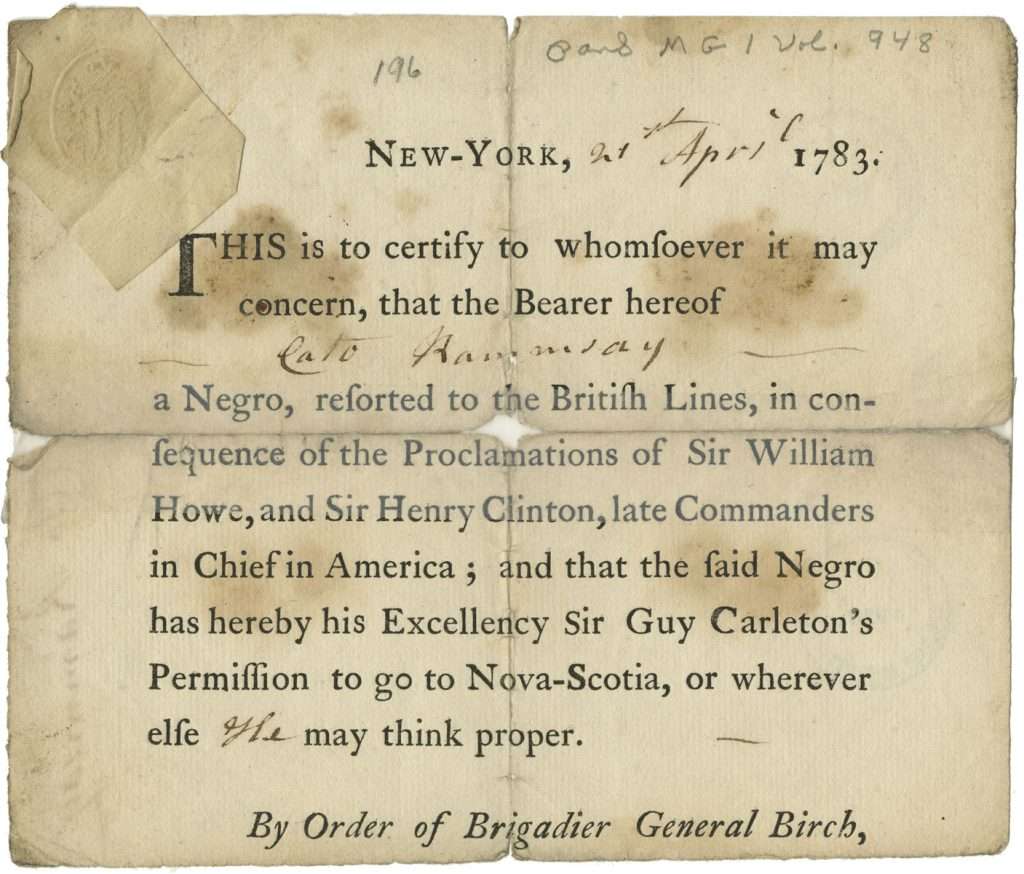 196
PANS MG 1 Vol. 948
NEW-YORK, 21st April 1783.
THIS is to certify to whomſoever it may
concern, that the Bearer hereof
— Cato Rammsay —
a Negro, reſorted to the Britiſh Lines, in con-
ſequence of the Proclamations of Sir William
Howe, and Sir Henry Clinton, late Commanders
in Chief in America; and that the ſaid Negro
has hereby his Excellency Sir Guy Carleton's
Permiſſion to go to Nova-Scotia, or wherever
elſe He may think proper. —
By Order of Brigadier General Birch,